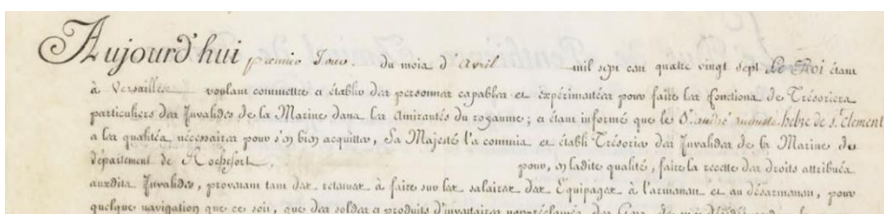 Aujourd'hui premier Jour du mois d'Avril mil sept cent quatre vingt sept Le Roi étant
à Versailles voulant commettre et établir des personnes capables et expérimentées pour faire les fonctions de Trésoriers
particuliers des Invalides de la Marine dans les Amirautés du royaume; et étant informé que le S. André Auguste hebre de S.t Clement
a les qualités nécessaires pour s'en bien acquitter, Sa Majesté l'a commis et établi Trésorier des Invalides de la Marine du
département de Rochefort, pour, en ladite qualité, faire la recette des droits attribués
auxdits Invalides, provenant tant des retenues à faire sur les salaires des Equipages à l'armement et au désarmement, pour
quelque navigation que ce soit, que des soldes et produits d'inventaires non réclamés des Gens de mer